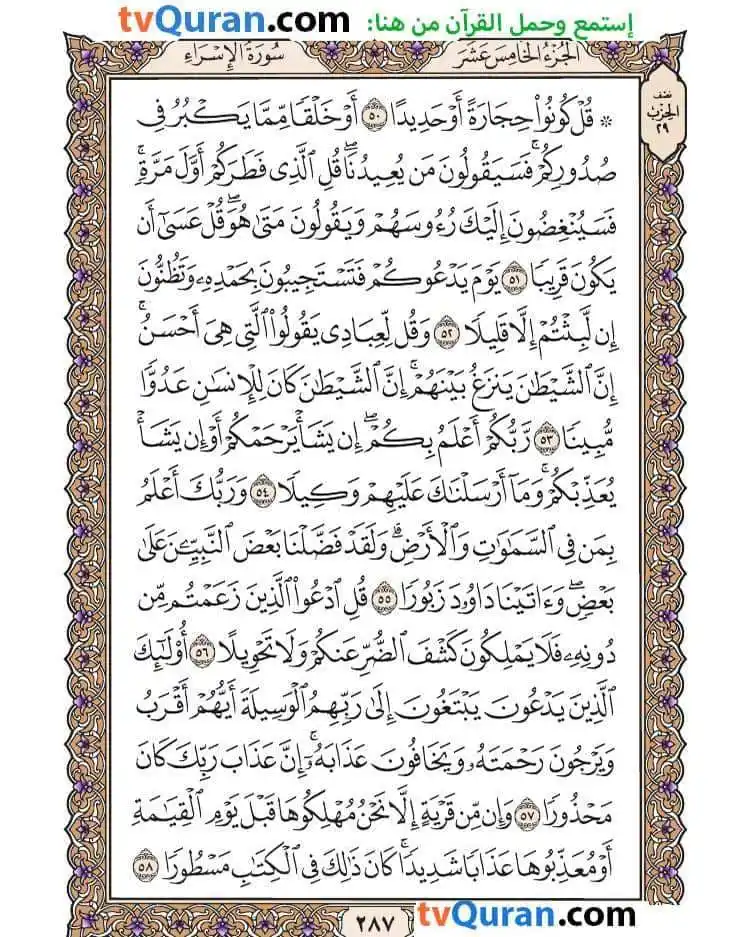 tvQuran.com إستمع وحمل القرآن من هنا:
الجُزْءُ الخَامِسَ عَشَرَ
سُورَةُ الإِسْرَاءِ
نصف
الحزب
٢٩
۞ قُلْ كُونُوا۟ حِجَارَةً أَوْ حَدِيدًا ٥٠ أَوْ خَلْقًا مِّمَّا يَكْبُرُ فِى
صُدُورِكُمْ ۚ فَسَيَقُولُونَ مَن يُعِيدُنَا ۖ قُلِ ٱلَّذِى فَطَرَكُمْ أَوَّلَ مَرَّةٍ ۚ
فَسَيُنْغِضُونَ إِلَيْكَ رُءُوسَهُمْ وَيَقُولُونَ مَتَىٰ هُوَ ۖ قُلْ عَسَىٰٓ أَن
يَكُونَ قَرِيبًا ٥١ يَوْمَ يَدْعُوكُمْ فَتَسْتَجِيبُونَ بِحَمْدِهِۦ وَتَظُنُّونَ
إِن لَّبِثْتُمْ إِلَّا قَلِيلًا ٥٢ وَقُل لِّعِبَادِى يَقُولُوا۟ ٱلَّتِى هِىَ أَحْسَنُ ۚ
إِنَّ ٱلشَّيْطَٰنَ يَنزَغُ بَيْنَهُمْ ۚ إِنَّ ٱلشَّيْطَٰنَ كَانَ لِلْإِنسَٰنِ عَدُوًّا
مُّبِينًا ٥٣ رَّبُّكُمْ أَعْلَمُ بِكُمْ ۖ إِن يَشَأْ يَرْحَمْكُمْ أَوْ إِن يَشَأْ
يُعَذِّبْكُمْ ۚ وَمَآ أَرْسَلْنَٰكَ عَلَيْهِمْ وَكِيلًا ٥٤ وَرَبُّكَ أَعْلَمُ
بِمَن فِى ٱلسَّمَٰوَٰتِ وَٱلْأَرْضِ ۗ وَلَقَدْ فَضَّلْنَا بَعْضَ ٱلنَّبِيِّـۧنَ عَلَىٰ
بَعْضٍ ۖ وَءَاتَيْنَا دَاوُۥدَ زَبُورًا ٥٥ قُلِ ٱدْعُوا۟ ٱلَّذِينَ زَعَمْتُم مِّن
دُونِهِۦ فَلَا يَمْلِكُونَ كَشْفَ ٱلضُّرِّ عَنكُمْ وَلَا تَحْوِيلًا ٥٦ أُو۟لَٰٓئِكَ
ٱلَّذِينَ يَدْعُونَ يَبْتَغُونَ إِلَىٰ رَبِّهِمُ ٱلْوَسِيلَةَ أَيُّهُمْ أَقْرَبُ
وَيَرْجُونَ رَحْمَتَهُۥ وَيَخَافُونَ عَذَابَهُۥٓ ۚ إِنَّ عَذَابَ رَبِّكَ كَانَ
مَحْذُورًا ٥٧ وَإِن مِّن قَرْيَةٍ إِلَّا نَحْنُ مُهْلِكُوهَا قَبْلَ يَوْمِ ٱلْقِيَٰمَةِ
أَوْ مُعَذِّبُوهَا عَذَابًا شَدِيدًا ۚ كَانَ ذَٰلِكَ فِى ٱلْكِتَٰبِ مَسْطُورًا ٥٨
٢٨٧
tvQuran.com